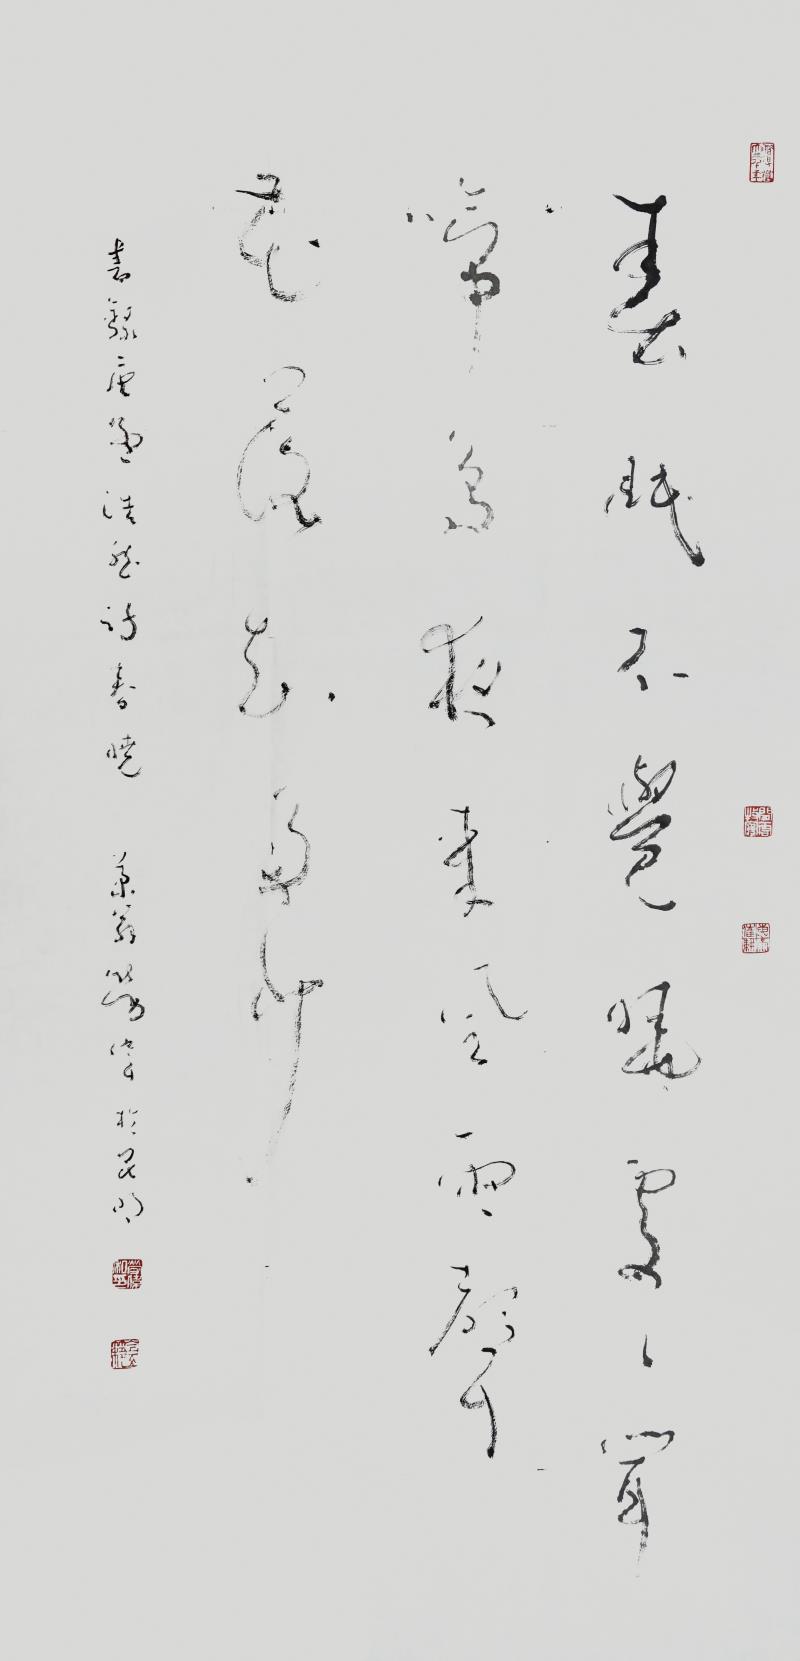 春眠不覺曉處々聞
啼鳥夜來風雨聲
花落知多少
書錄唐孟浩然詩春曉 於昆明